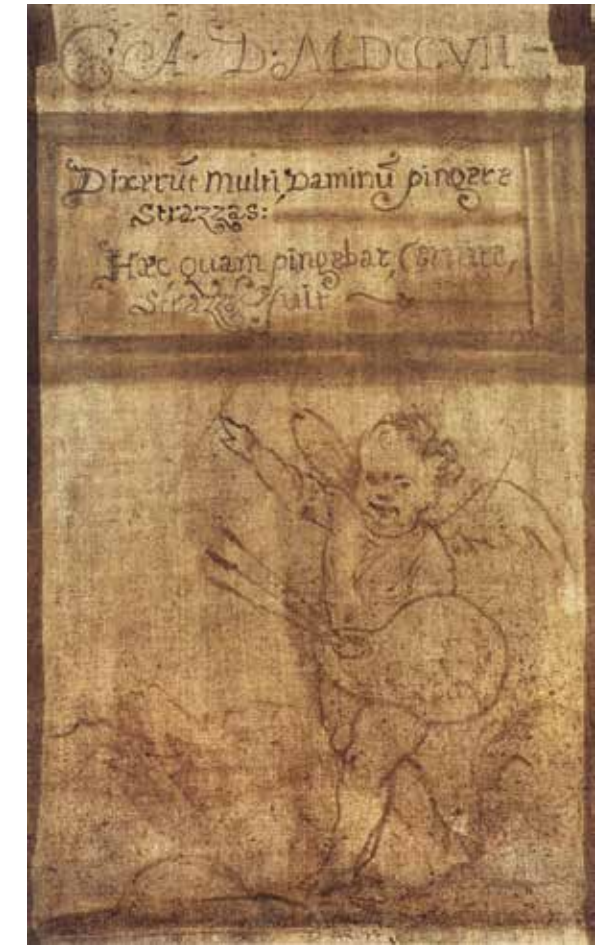 A. D. MDCCVII
Dixerūt multi, Daminū pingere
strazzas:
Hæc quam pingebat,
strazza fuit